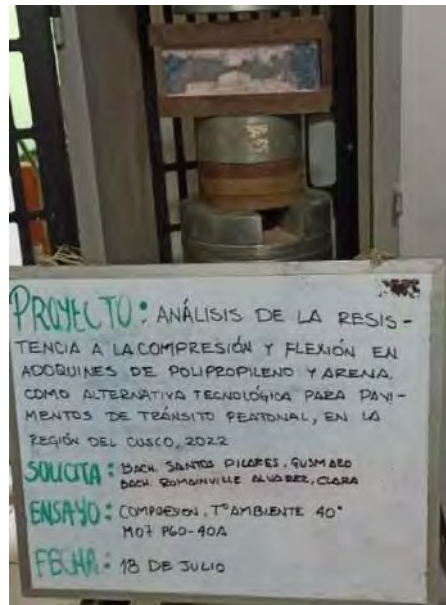 PROYECTO: ANÁLISIS DE LA RESIS-
TENCIA A LA COMPRESIÓN Y FLEXIÓN EN
ADOQUINES DE POLIPROPILENO Y ARENA,
COMO ALTERNATIVA TECNOLÓGICA PARA PAVI-
MENTOS DE TRÁNSITO PEATONAL, EN LA
REGIÓN DEL CUSCO, 2022
SOLICITA: BACH. SANTOS PILARES, GUSMARO
BACH. ROMAINVILLE ALVAREZ, CLARA
ENSAYO: COMPRESION, T° AMBIENTE 40°
M07 P60-40A
FECHA: 18 DE JULIO